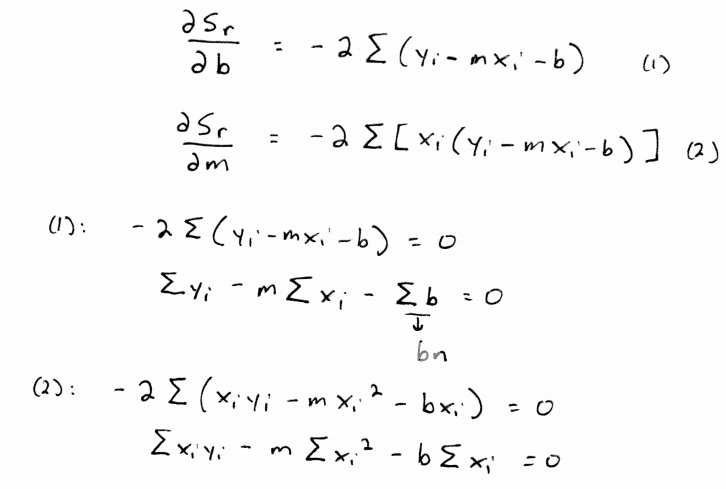 ∂Sr/∂b = -2 Σ(yi - mxi - b) (1)
∂Sr/∂m = -2 Σ[xi(yi - mxi - b)] (2)
(1): -2 Σ(yi - mxi - b) = 0
Σyi - m Σxi - Σb = 0
↓
bn
(2): -2 Σ(xiyi - mxi² - bxi) = 0
Σxiyi - m Σxi² - b Σxi = 0